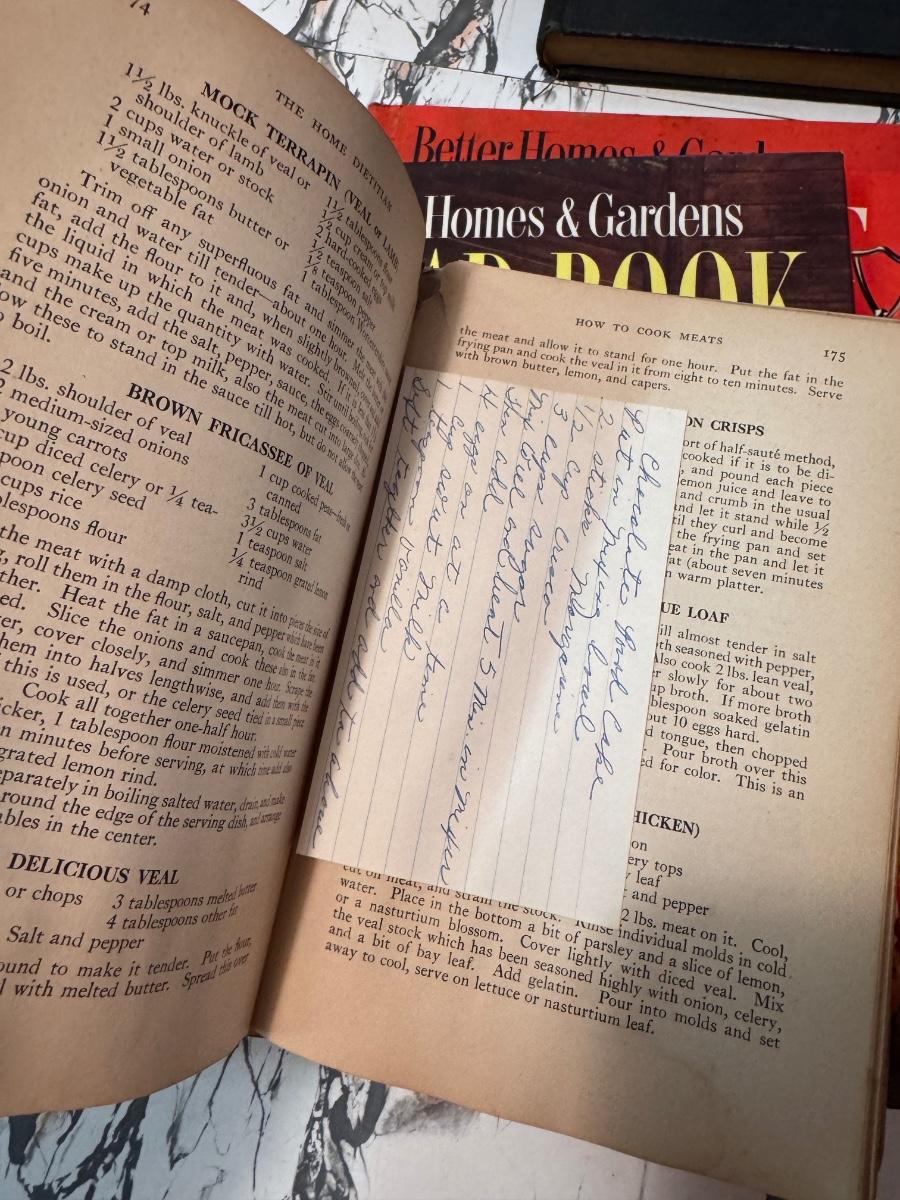 /4
THE HOME DIETITIAN
MOCK TERRAPIN (VEAL or LAMB)
1½ lbs. knuckle of veal or
shoulder of lamb
2 cups water or stock
1 small onion
1½ tablespoons butter or
vegetable fat
1½ tablespoons flour
½ cup cream or top milk
2 hard-cooked eggs
½ teaspoon salt
⅛ teaspoon pepper
1 tablespoon
Trim off any superfluous fat and simmer the meat with
onion and water till tender—about one hour. Melt the
fat, add the flour to it and, when slightly browned,
the liquid in which the meat was cooked. If it
cups make up the quantity with water. Stir until
five minutes, add the salt, pepper, sauce, the eggs
and the cream or top milk, also the meat cut into large
ow these to stand in the sauce till hot, but do not allow
o boil.
BROWN FRICASSEE OF VEAL
2 lbs. shoulder of veal
2 medium-sized onions
young carrots
cup diced celery or ¼ tea-
poon celery seed
cups rice
blespoons flour
1 cup cooked peas—fresh or
canned
3 tablespoons fat
3½ cups water
1 teaspoon salt
¼ teaspoon grated lemon
rind
the meat with a damp cloth, cut it into pieces the size of
g, roll them in the flour, salt, and pepper which have been
ther. Heat the fat in a saucepan, cook the meat in it
ed. Slice the onions and cook these also in the fat.
er, cover closely, and simmer one hour. Scrape the
hem into halves lengthwise, and add them with the
this is used, or the celery seed tied in a small piece
Cook all together one-half hour.
icker, 1 tablespoon flour moistened with cold water
n minutes before serving, at which time add also
grated lemon rind.
eparately in boiling salted water, drain, and make
round the edge of the serving dish, and arrange
ables in the center.
DELICIOUS VEAL
or chops
3 tablespoons melted butter
4 tablespoons other fat
Salt and pepper
ound to make it tender. Put the flour,
d with melted butter. Spread this over
Better Homes & Gard
Homes & Gardens
AD BOOK
HOW TO COOK MEATS
175
the meat and allow it to stand for one hour. Put the fat in the
frying pan and cook the veal in it from eight to ten minutes. Serve
with brown butter, lemon, and capers.
Chocolate Pound Cake
Put in mixing bowl
2 sticks Margarine
1/2 cup Crisco
3 cups sugar
Mix well and beat 5 Min. on Mixer
then add
4 eggs one at a time
1 cup sweet milk
1 teaspoon vanilla
ON CRISPS
ort of half-sauté method,
cooked if it is to be di-
, and pound each piece
emon juice and leave to
and crumb in the usual
nd let it stand while ½
til they curl and become
the frying pan and set
eat in the pan and let it
at (about seven minutes
n warm platter.
UE LOAF
ill almost tender in salt
oth seasoned with pepper,
Also cook 2 lbs. lean veal,
er slowly for about two
up broth. If more broth
blespoon soaked gelatin
out 10 eggs hard.
d tongue, then chopped
Pour broth over this
ed for color. This is an
HICKEN)
on
ery tops
y leaf
t and pepper
2 lbs. meat on it. Cool,
cut off meat, and strain the stock. Rinse individual molds in cold
water. Place in the bottom a bit of parsley and a slice of lemon,
or a nasturtium blossom. Cover lightly with diced veal. Mix
the veal stock which has been seasoned highly with onion, celery,
and a bit of bay leaf. Add gelatin. Pour into molds and set
away to cool, serve on lettuce or nasturtium leaf.